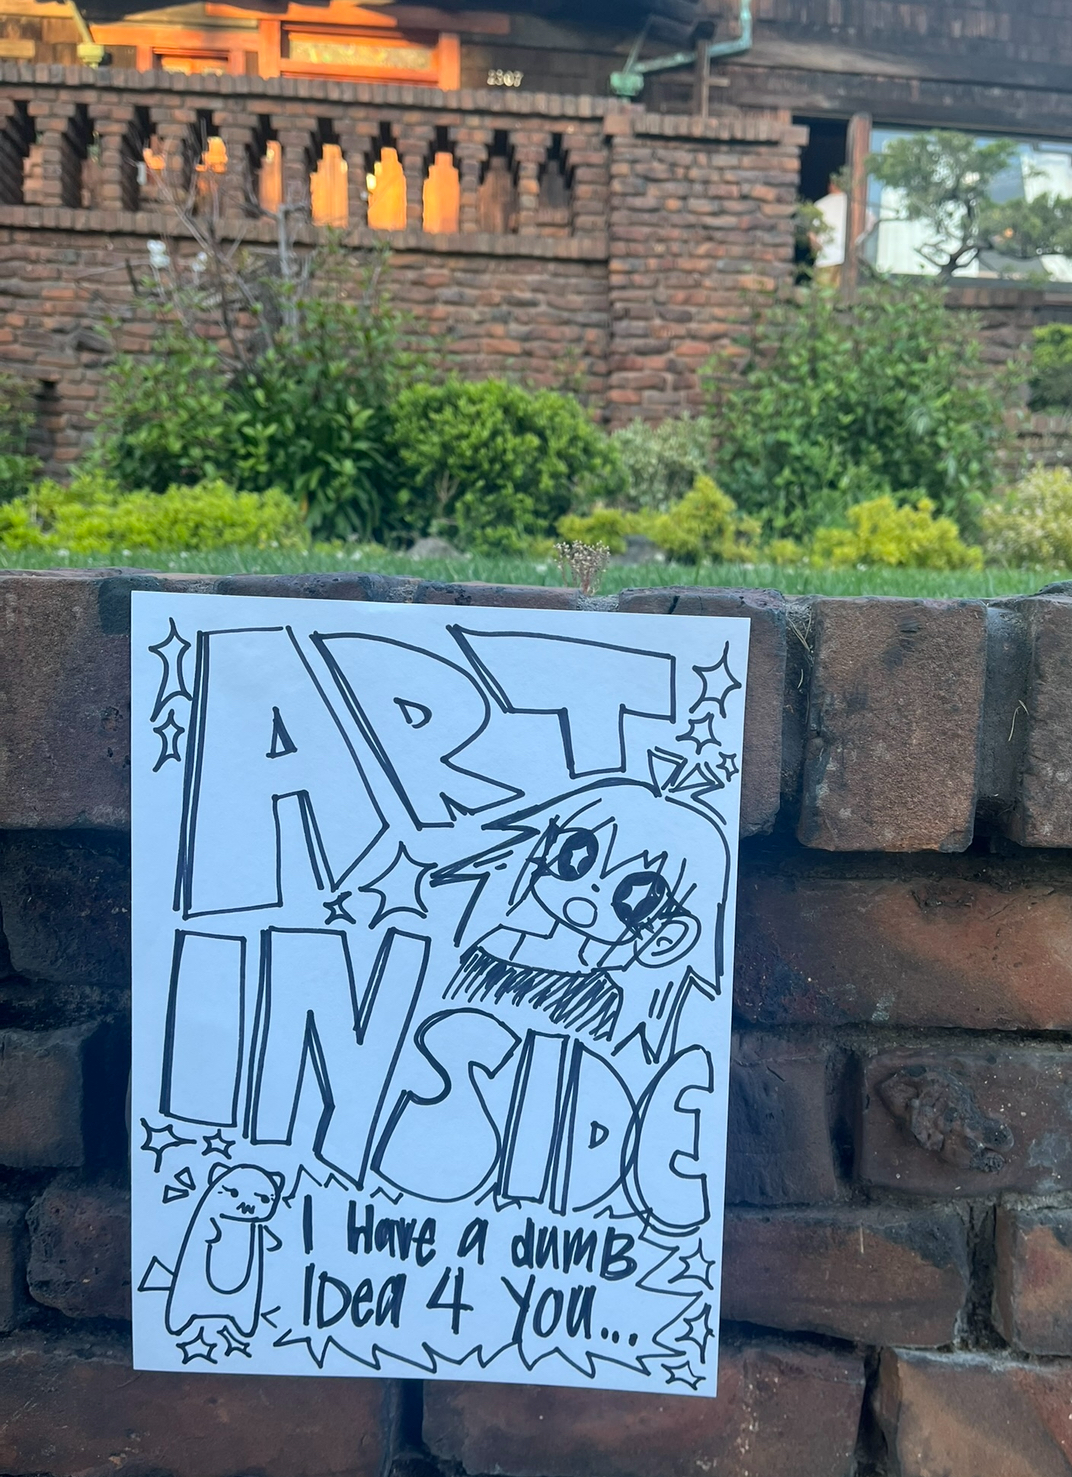 2307
ART
INSIDE
I Have a dumB
IDea 4 You...